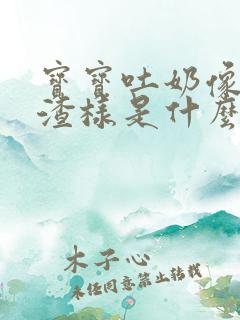 寶寶吐奶像
渣樣是什麼
木子心
未經同意禁止轉載